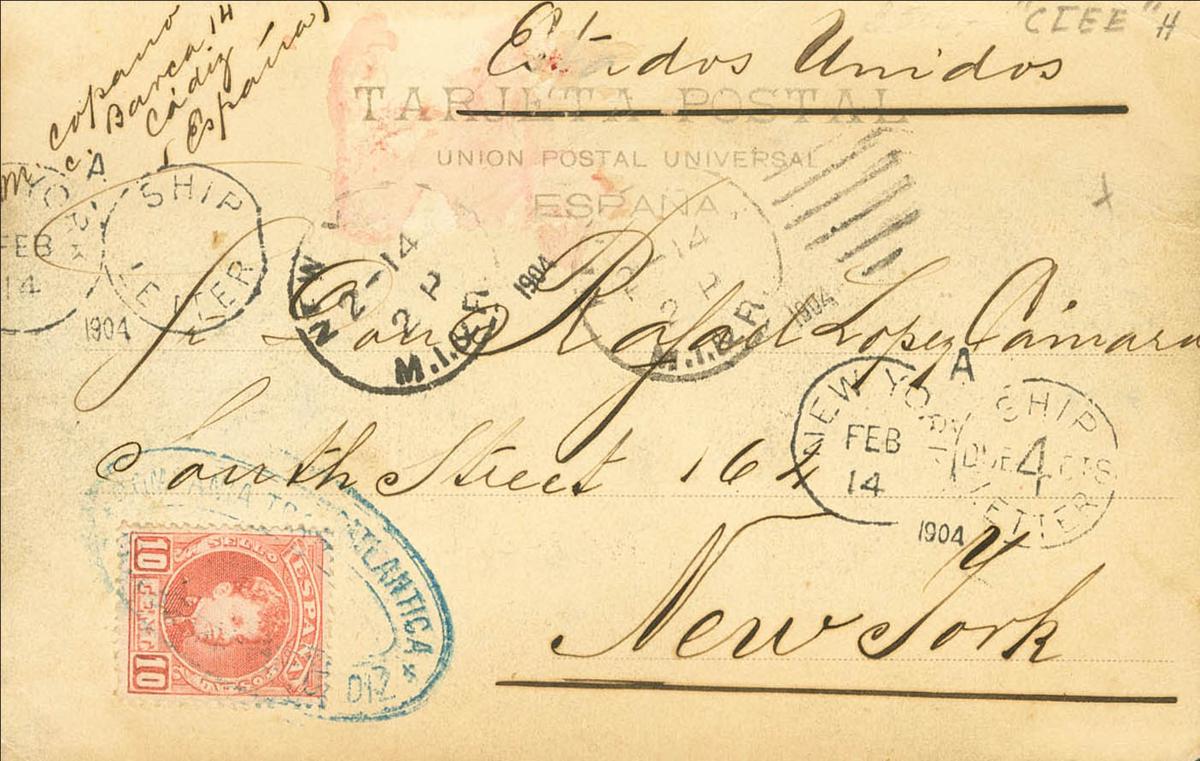 "CIEE" H
M. copano
c. Barca 14
Cádiz
(España)
Estados Unidos
TARJETA POSTAL
UNION POSTAL UNIVERSAL
ESPAÑA
YO A
FEB
14
1904
SHIP
LETTER
NEW
2-14
2 P
M.I.&.R.
1904
2-14
2 P
M.I.&.R.
1904
Sr Don Rafael Lopez Cámara
South Street 164
NEW YO A
FEB
14
1904
SHIP
DUE 4 CTS
LETTER
y
New York
TRASATLANTICA *
DIZ
SELLO
ESPAÑA
10
10